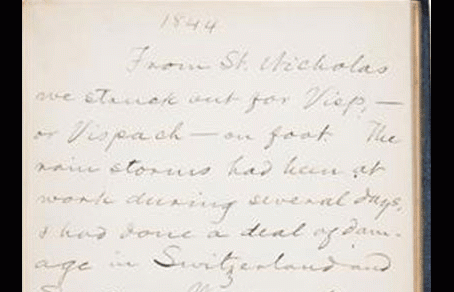 1844
From St. Nicholas
we struck out for Visp, —
or Vispach — on foot. The
rain storms had been at
work during several days,
& had done a deal of dam-
age in Switzerland and